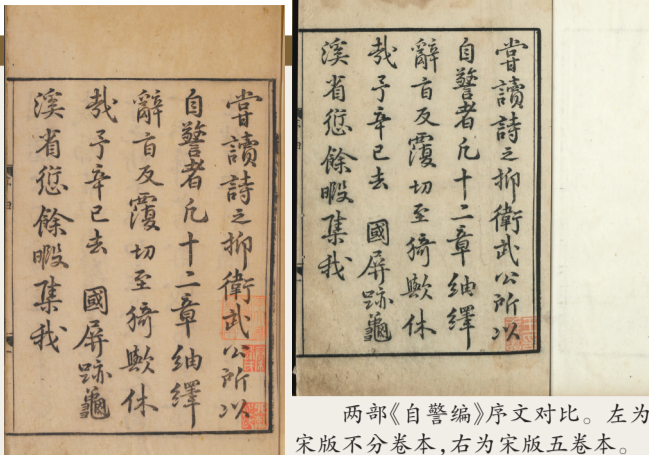 甞讀詩之抑衛武公所以
自警者凡十二章紬繹
辭旨反覆切至猗歟休
哉予辛巳去 國屏跡龜
溪省愆餘暇集我
甞讀詩之抑衛武公所以
自警者凡十二章紬繹
辭旨反覆切至猗歟休
哉予辛巳去 國屏跡龜
溪省愆餘暇集我
两部《自警编》序文对比。左为
宋版不分卷本,右为宋版五卷本。